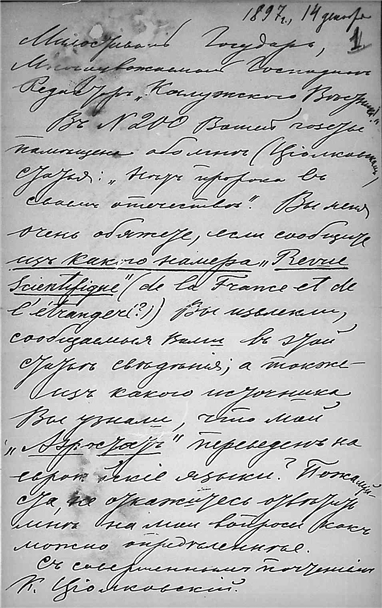 1897 г., 14 декабря
1
Милостивый Государь,
Многоуважаемый Господинъ
Редакторъ „Калужского Вѣстника“
Въ № 200 Вашей газеты
помѣщена обо мнѣ (Ціолковскомъ)
статья: „нѣтъ пророка въ
своемъ отечествѣ“. Вы меня
очень обяжете, если сообщите
изъ какого номера „Revue
Scientifique“ (de la France et de
l'étranger(?)) Вы извлекли,
сообщаемыя Вами въ этой
статьѣ свѣдѣнія; а также
изъ какого источника
Вы узнали, что мой
„Аэростатъ“ переведенъ на
европейскіе языки? Пожалуй-
ста, не откажитесь отвѣтить
мнѣ на мои вопросы какъ
можно опредѣленнѣе.
Съ совершеннымъ почтеніемъ
К. Ціолковскій.